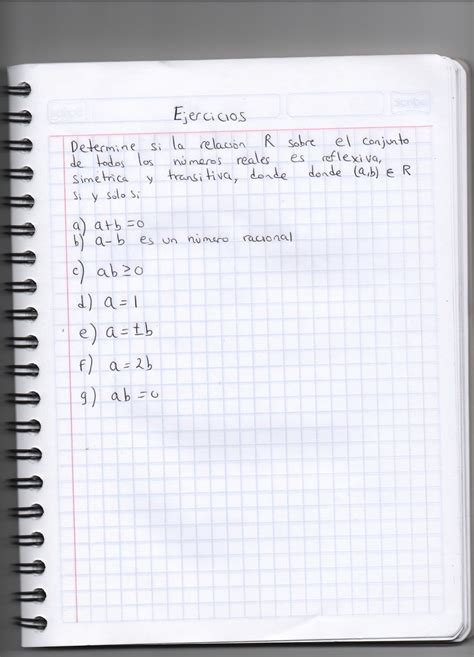 Ejercicios
Determine si la relación R sobre el conjunto
de todos los números reales es reflexiva,
simetrica y transitiva, donde donde (a,b) ∈ R
si y solo si
a) a+b=0
b) a-b es un número racional
c) ab≥0
d) a=1
e) a=±b
f) a=2b
g) ab=0